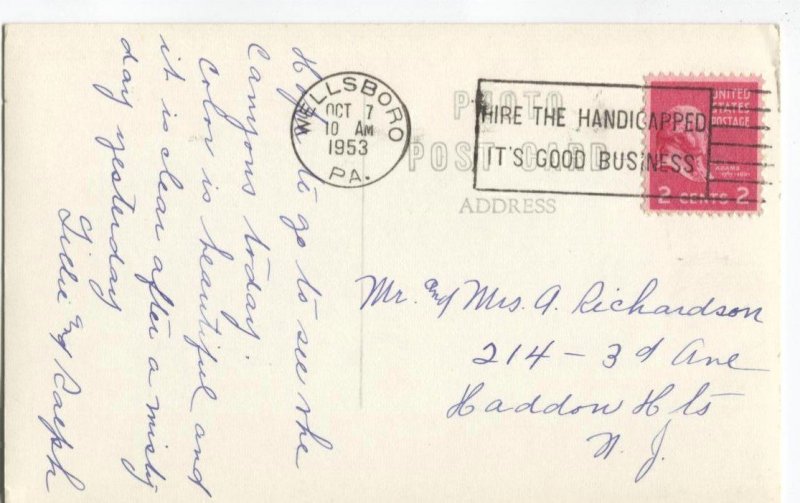 Hope to go to see the
Canyons today.
Color is beautiful and
it is clear after a misty
day yesterday
and Ralph
WELLSBORO
OCT 7
10 AM
1953
PA.
PHOTO
POST CARD
ADDRESS
HIRE THE HANDICAPPED
IT'S GOOD BUSINESS
UNITED
STATES
POSTAGE
ADAMS
2 CENTS 2
Mr. and Mrs. A. Richardson
214 - 3d Ave
Haddon Hts
N. J.